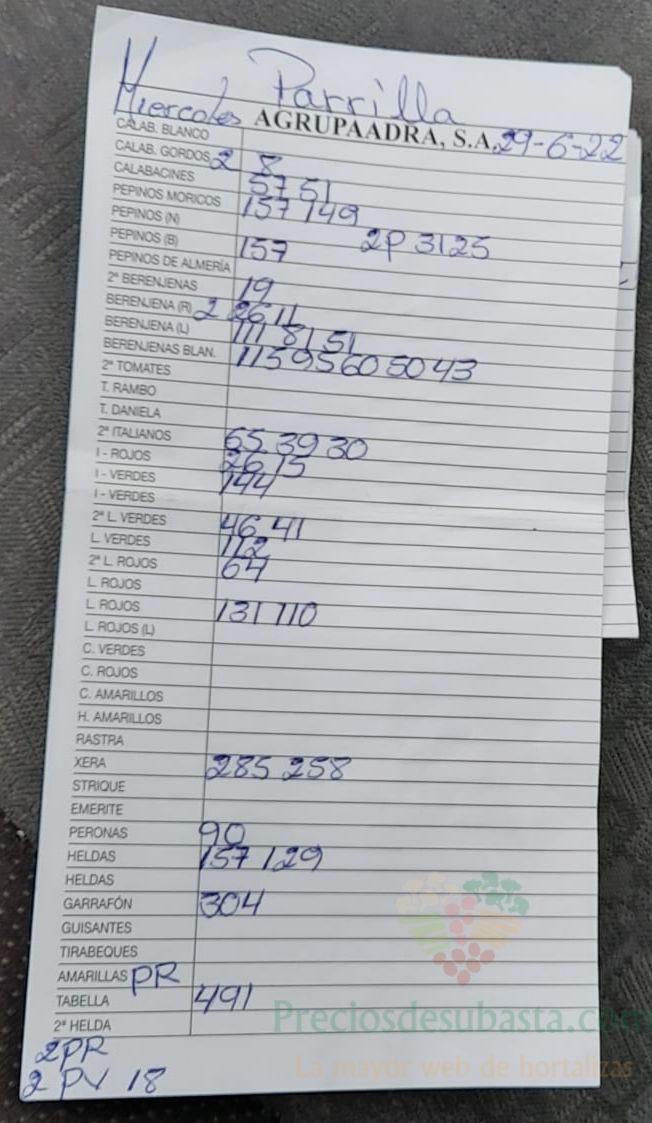 Parrilla
Miercoles AGRUPAADRA, S.A. 29-6-22
CALAB. BLANCO
CALAB. GORDOS 2 8
CALABACINES 57 51
PEPINOS MORICOS 157 149
PEPINOS (N) 2P 31 25
PEPINOS (B) 157
PEPINOS DE ALMERÍA
2ª BERENJENAS 19
BERENJENA (R) 2 26 11
BERENJENA (L) 111 81 51
BERENJENAS BLAN. 115 95 60 50 43
2ª TOMATES
T. RAMBO
T. DANIELA
2ª ITALIANOS 65 39 30
I - ROJOS 26 15
I - VERDES 144
I - VERDES
2ª L. VERDES 46 41
L. VERDES 112
2ª L. ROJOS 64
L. ROJOS
L. ROJOS 131 110
L. ROJOS (L)
C. VERDES
C. ROJOS
C. AMARILLOS
H. AMARILLOS
RASTRA
XERA 285 258
STRIQUE
EMERITE
PERONAS 90
HELDAS 157 129
HELDAS
GARRAFÓN 304
GUISANTES
TIRABEQUES
AMARILLAS PR
TABELLA 491
2ª HELDA
2 PR
2 PV 18
Preciosdesubasta.com
La mayor web de hortalizas